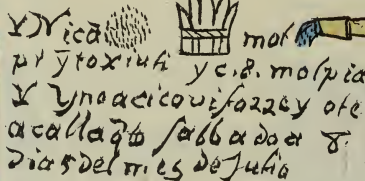 Y Nicã mol
pr ỹtoxiuh yc.8. molpia
Y Ynoacico
acallaq̃to sabbado a 8.
Dias del mes de Julio